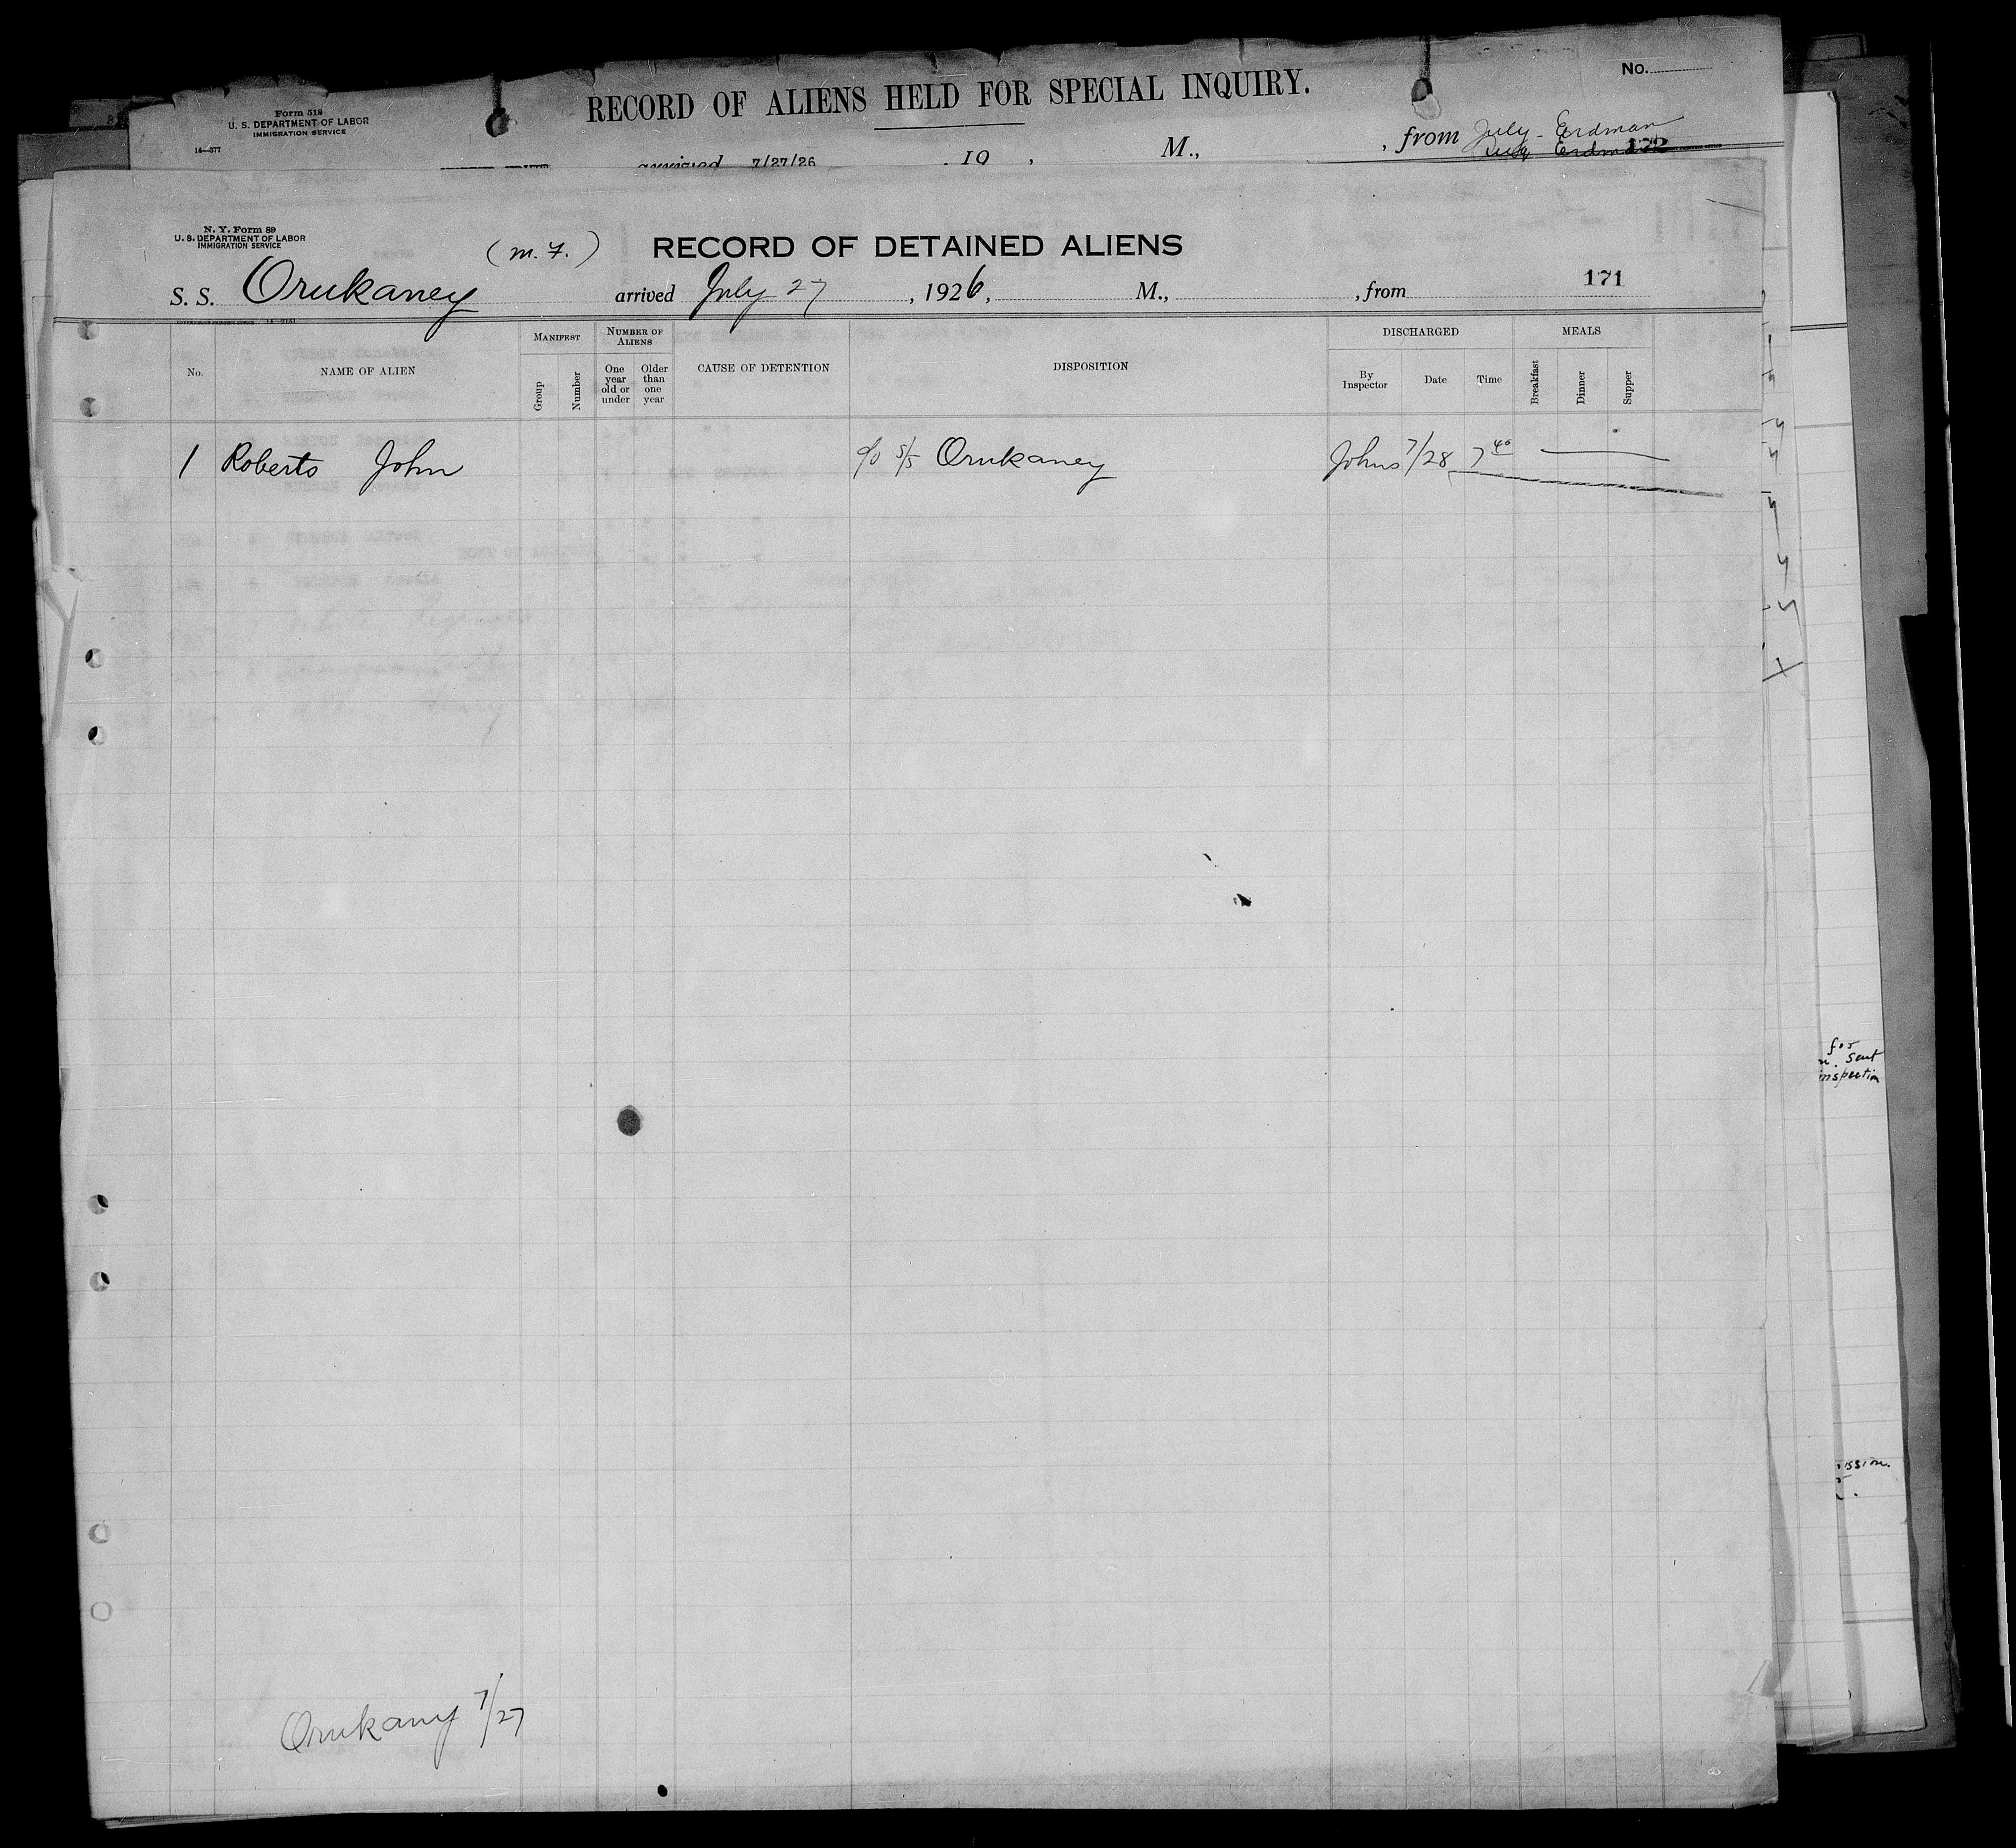 Form 519
U. S. DEPARTMENT OF LABOR
IMMIGRATION SERVICE
14—377
RECORD OF ALIENS HELD FOR SPECIAL INQUIRY.
No.
arrived 7/27/26 , 19 , M., , from July - Erdman
Erdman 172
N. Y. Form 89
U. S. DEPARTMENT OF LABOR
IMMIGRATION SERVICE
(m. F.) RECORD OF DETAINED ALIENS
S. S. Orukaney arrived July 27 , 1926, M., , from 171
No. NAME OF ALIEN MANIFEST Group Number NUMBER OF ALIENS One year old or under Older than one year CAUSE OF DETENTION DISPOSITION DISCHARGED By Inspector Date Time MEALS Breakfast Dinner Supper
1 Roberts John c/o S/S Orukaney Johns 7/28 7 40
for
sent
inspection
ission.
Orukany 7/27